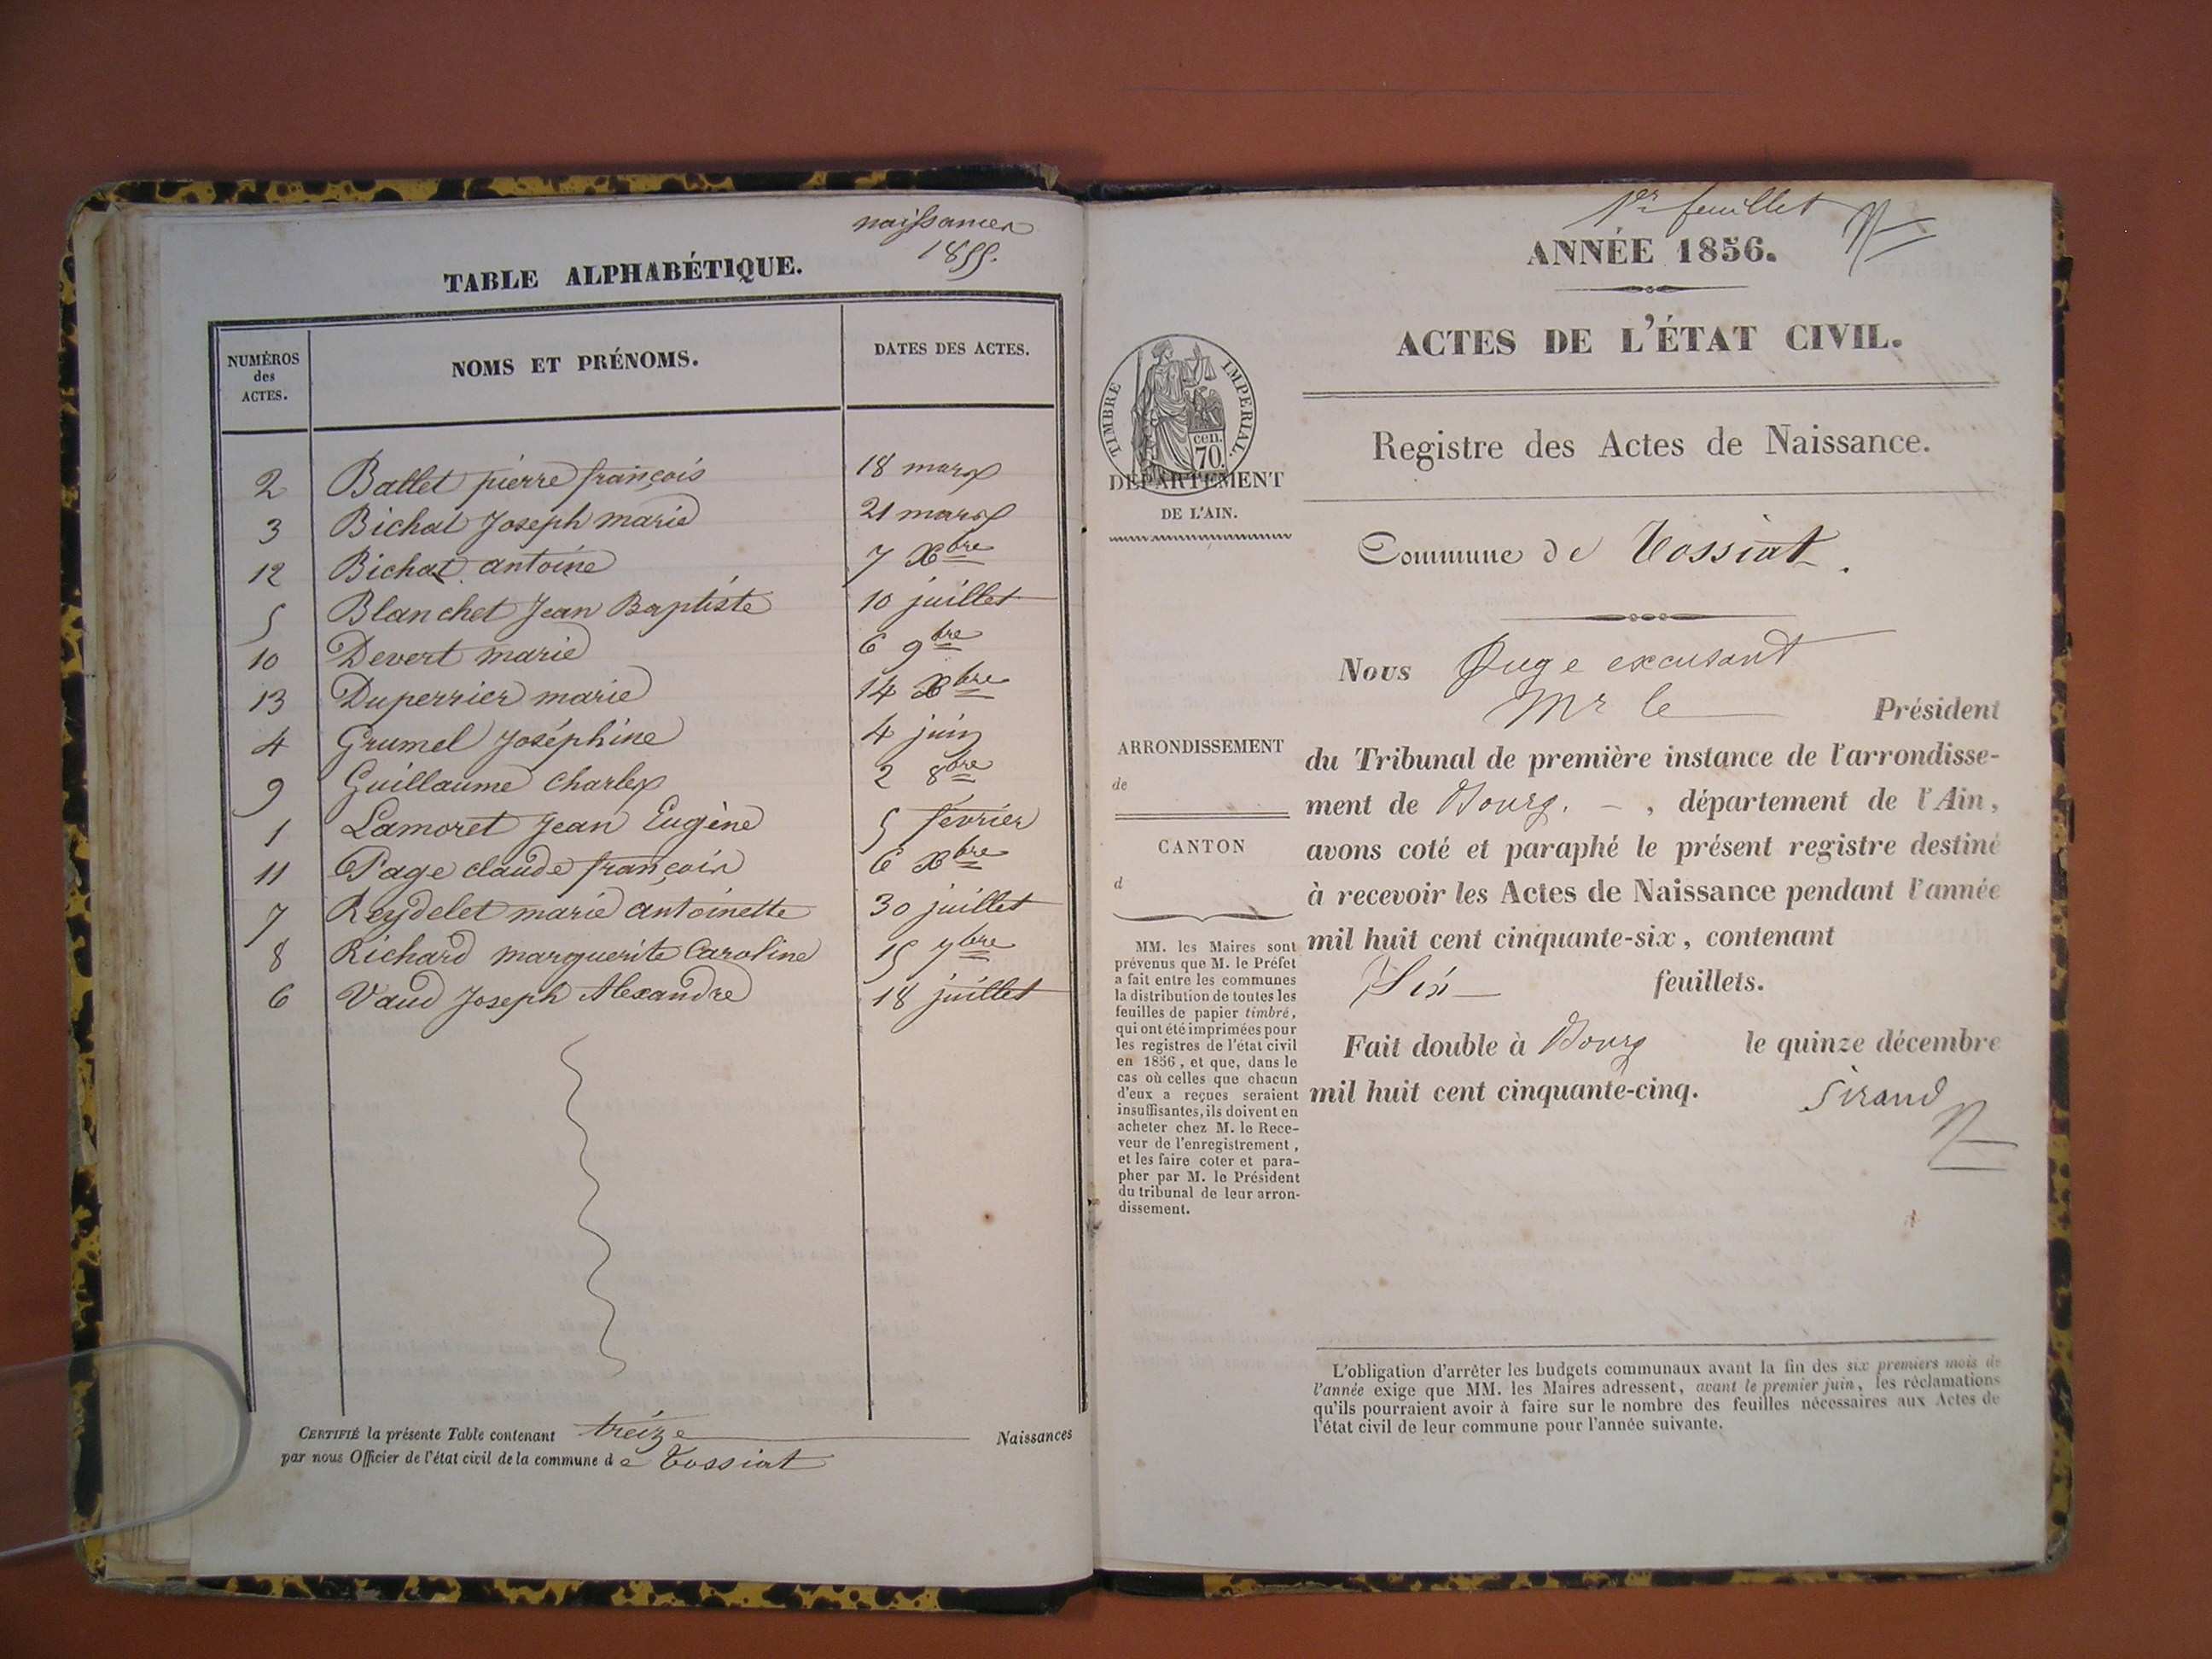 naissances
1855.
TABLE ALPHABÉTIQUE.
NUMÉROS
des
ACTES.
NOMS ET PRÉNOMS.
DATES DES ACTES.
2 Ballet pierre françois 18 mars
3 Bichat Joseph marie 21 mars
12 Bichat antoine 7 Xbre
5 Blanchet Jean Baptiste 10 juillet
10 Devert marie 6 9bre
13 Duperrier marie 14 Xbre
4 Grumel Joséphine 4 juin
9 Guillaume Charles 2 8bre
1 Lamoret Jean Eugène 5 février
11 Page claude françois 6 Xbre
7 Reydelet marie antoinette 30 juillet
8 Richard marguerite Caroline 15 7bre
6 Vaud Joseph Alexandre 18 juillet
CERTIFIÉ la présente Table contenant treize Naissances
par nous Officier de l'état civil de la commune de Tossiat
1er feuillet
ANNÉE 1856.
ACTES DE L'ÉTAT CIVIL.
TIMBRE IMPERIAL.
cen.
70.
DÉPARTEMENT
DE L'AIN.
Registre des Actes de Naissance.
Commune de Tossiat.
Nous Juge excusant
Mr le Président
du Tribunal de première instance de l'arrondisse-
ment de Bourg. - , département de l'Ain,
avons coté et paraphé le présent registre destiné
à recevoir les Actes de Naissance pendant l'année
mil huit cent cinquante-six, contenant
Six feuillets.
Fait double à Bourg le quinze décembre
mil huit cent cinquante-cinq.
Sirand
ARRONDISSEMENT
de
CANTON
d
MM. les Maires sont
prévenus que M. le Préfet
a fait entre les communes
la distribution de toutes les
feuilles de papier timbré,
qui ont été imprimées pour
les registres de l'état civil
en 1856, et que, dans le
cas où celles que chacun
d'eux a reçues seraient
insuffisantes, ils doivent en
acheter chez M. le Rece-
veur de l'enregistrement,
et les faire coter et para-
pher par M. le Président
du tribunal de leur arron-
dissement.
L'obligation d'arrêter les budgets communaux avant la fin des six premiers mois de
l'année exige que MM. les Maires adressent, avant le premier juin, les réclamations
qu'ils pourraient avoir à faire sur le nombre des feuilles nécessaires aux Actes de
l'état civil de leur commune pour l'année suivante.